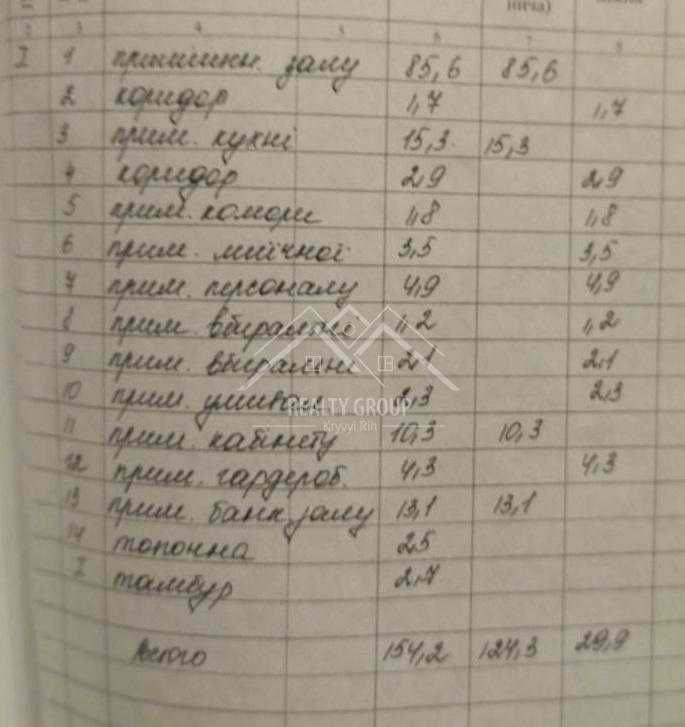 ніча)
2 3 4 5 6 7 8
I 1 приміщен. залу 85,6 85,6
2 коридор 1,7 1,7
3 прим. кухні 15,3 15,3
4 коридор 2,9 2,9
5 прим. комори 1,8 1,8
6 прим. мийної 3,5 3,5
7 прим. персоналу 4,9 4,9
8 прим. вбиральні 1,2 1,2
9 прим. вбиральні 2,1 2,1
10 прим. умивал 2,3 2,3
REALTY GROUP
Kryvyi Rih
11 прим. кабінету 10,3 10,3
12 прим. гардероб. 4,3 4,3
13 прим. банк. залу 13,1 13,1
14 топочна 2,5
I тамбур 2,7
Всього 154,2 124,3 29,9